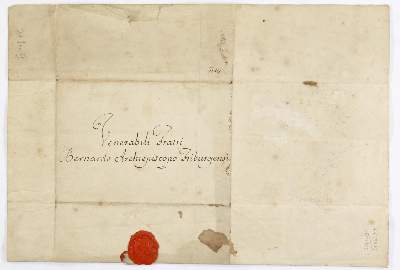 Venerabili Fratri
Bernardo Archiepiscopo Friburgensi